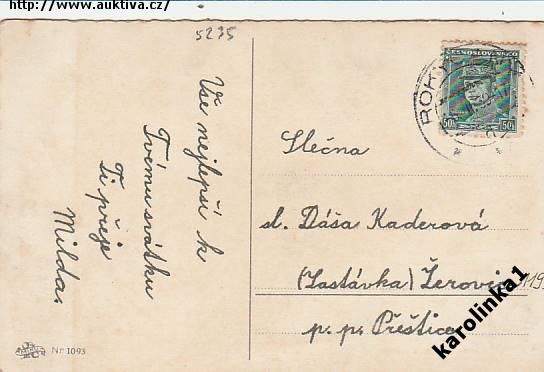 http://www.auktiva.cz/
5235
Vše nejlepší k
Tvému svátku
Ti přeje
Milda.
ČESKOSLOVENSKO
50h 50h
ROKY
Slečna
sl. Dáša Kaderová
(Zastávka) Žerovic
p. p. Přeštice
119
karolinka1
Nr 1093